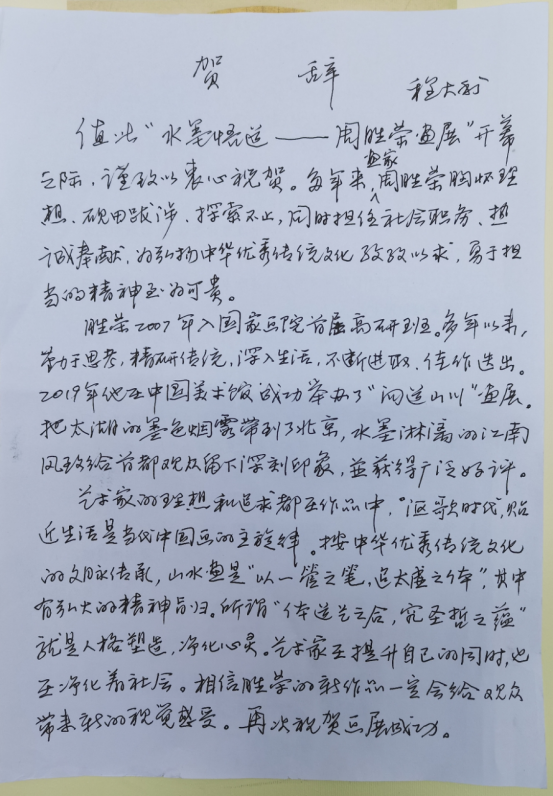 贺 辞
程大利
值此“水墨悟道——周胜荣画展”开幕
之际,谨致以衷心祝贺。多年来,画家周胜荣胸怀理
想、砚田跋涉、探索不止,同时担任社会职务、热
诚奉献,为弘扬中华优秀传统文化孜孜以求,勇于担
当的精神至为可贵。
胜荣2007年入国家画院首届高研班。多年以来,
勤于思考,精研传统,深入生活,不断进取,佳作迭出。
2019年他在中国美术馆成功举办了“问道山川”画展。
把太湖的墨色烟霭带到了北京,水墨淋漓的江南
风致给首都观众留下深刻印象,并获得广泛好评。
艺术家的理想和追求都在作品中,“讴歌时代,贴
近生活是当代中国画的主旋律。按中华优秀传统文化
的文脉传承,山水画是“以一管之笔,追太虚之体”,其中
有弘大的精神旨归。所谓“体道艺之合,究圣哲之蕴”
就是人格塑造,净化心灵。艺术家在提升自己的同时,也
在净化着社会。相信胜荣的新作品一定会给观众
带来新的视觉感受。再次祝贺画展成功。